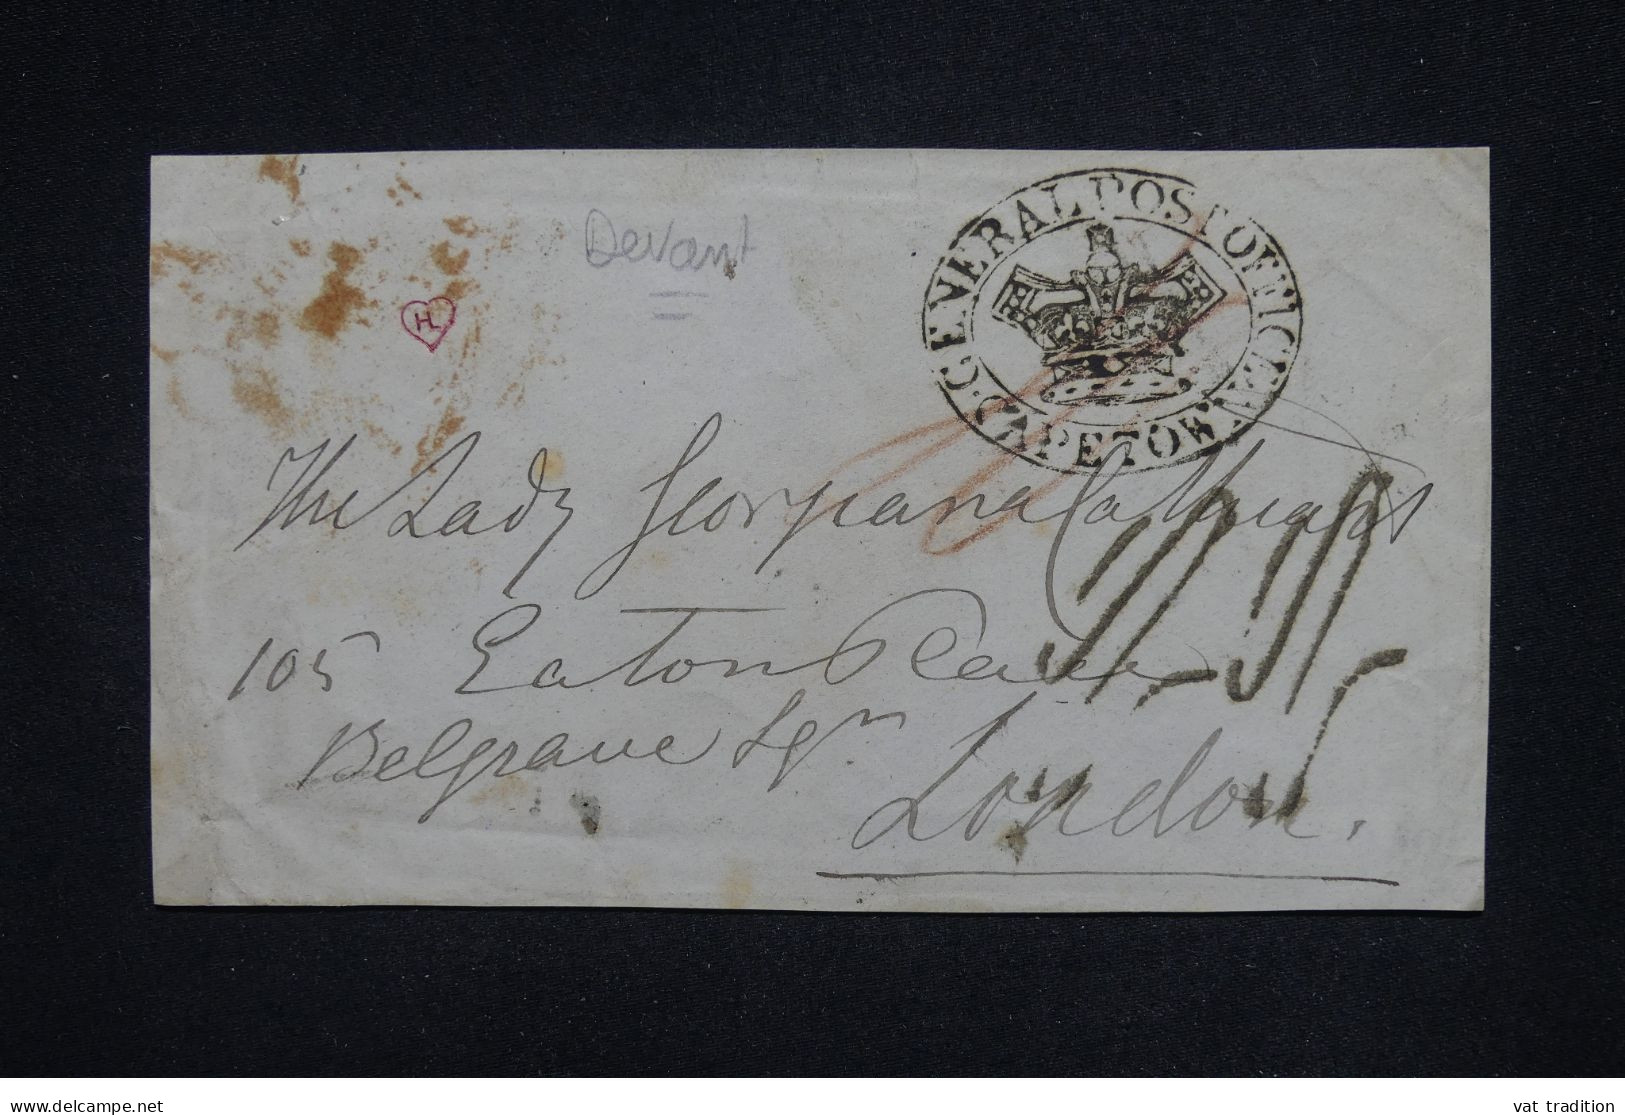 GENERAL POST OFFICE
CAPE TOWN
Devant
HL
The Lady Georgiana
105 Eaton Place
Belgrave Sqr
London.
www.delcampe.net
vat tradition